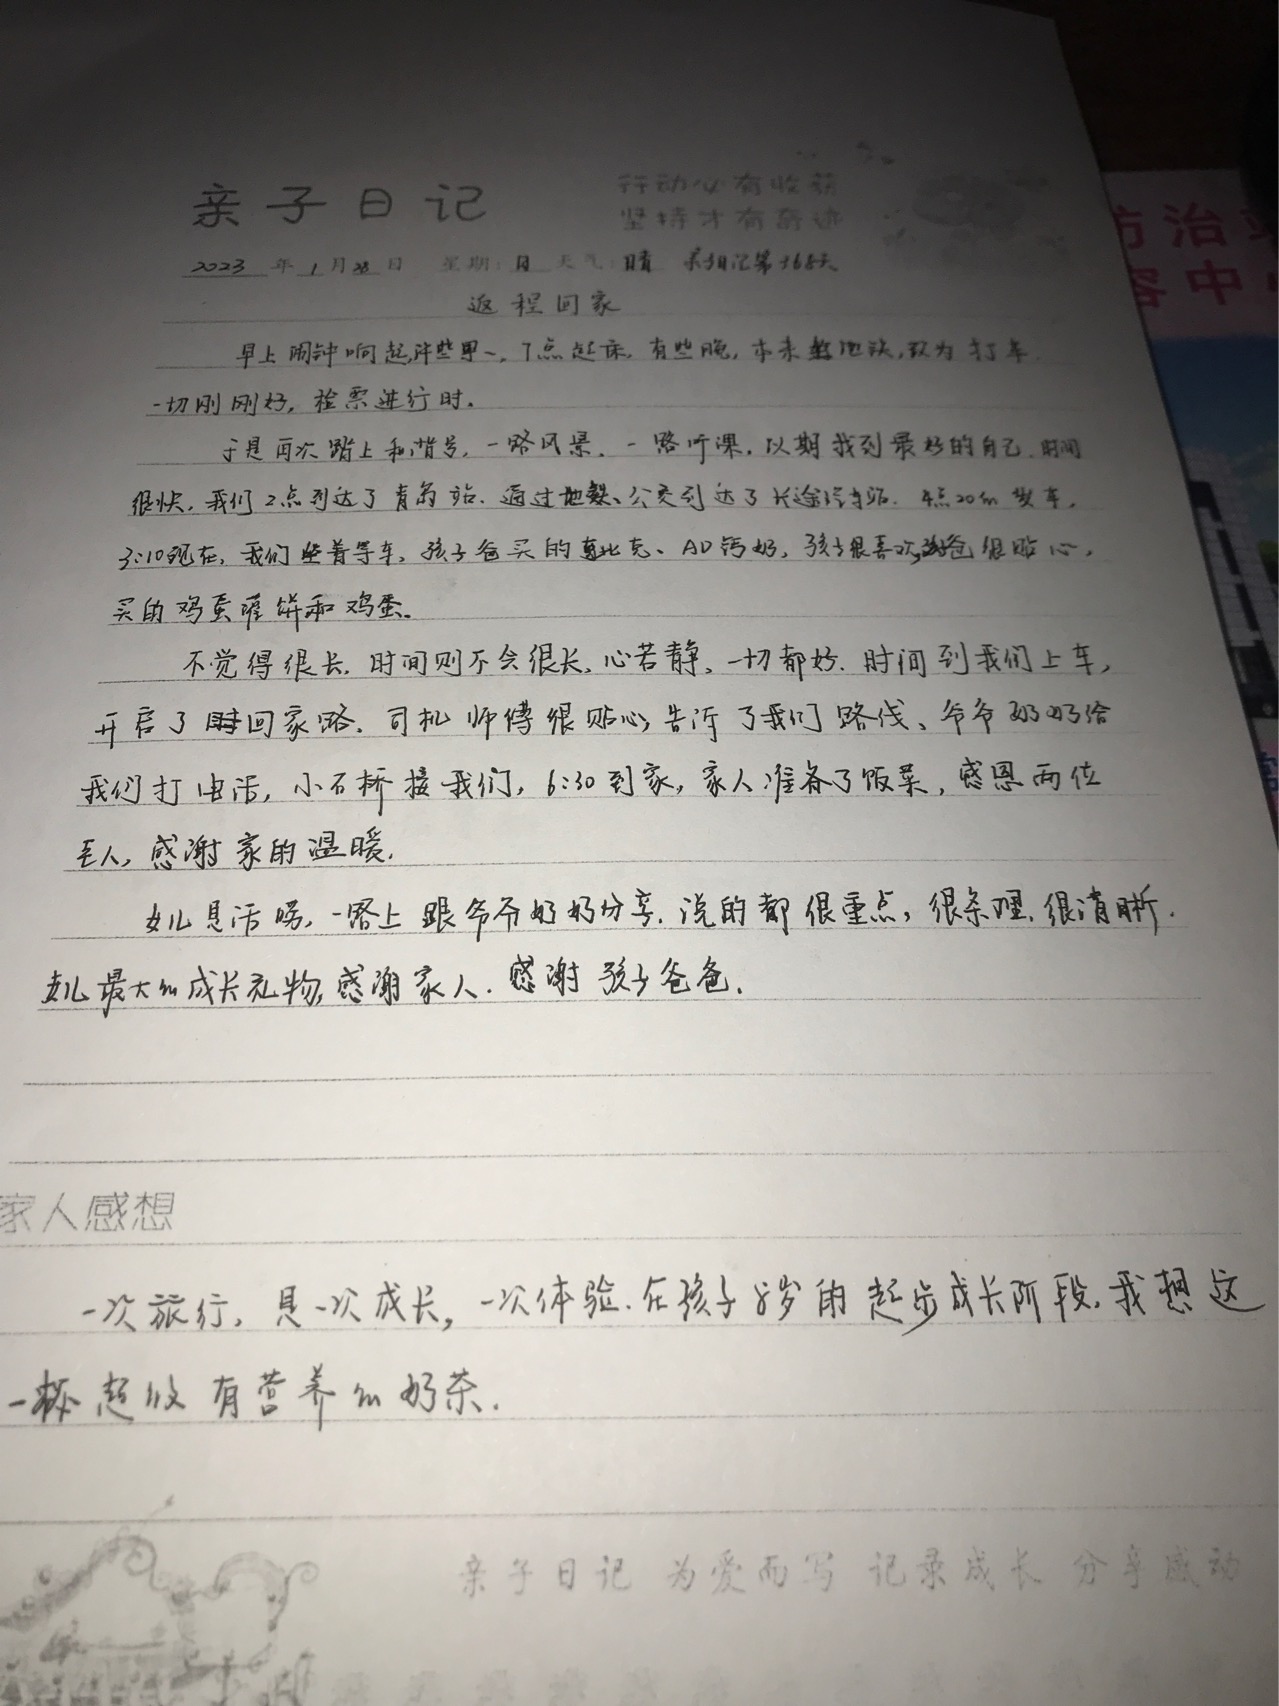 亲子日记
行动必有收获
坚持才有奇迹
2023 年 1 月 28 日 星期:日 天气:晴 亲子日记第168天
返程回家
早上闹钟响起,7点起床,有些晚,本来地铁,改为打车.
一切刚刚好,检票进行时.
于是再次踏上和谐号,一路风景,一路听课,以期找到最好的自己.时间
很快,我们2点到达了青岛站.通过地铁、公交到达了长途汽车站.4点20的发车,
3:10现在,我们坐着等车,孩子爸买的、AD钙奶,孩子很喜欢,爸很贴心,
买的鸡蛋灌饼和鸡蛋。
不觉得很长,时间则不会很长,心若静,一切都好.时间到我们上车,
开启了回家路.司机师傅很贴心,告诉了我们路线、爷爷奶奶给
我们打电话,小石桥接我们,6:30到家,家人准备了饭菜,感恩两位
老人,感谢家的温暖.
女儿是话唠,一路上跟爷爷奶奶分享.说的都很重点,很条理,很清晰.
女儿最大的成长礼物,感谢家人.感谢孩子爸爸.
家人感想
一次旅行,是一次成长,一次体验.在孩子8岁的起步成长阶段,我想这
一杯超级有营养的奶茶.
亲子日记 为爱而写 记录成长 分享感动
防治
容中